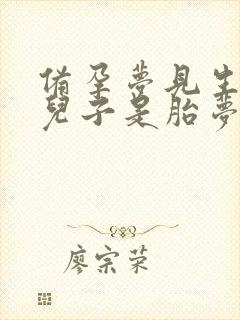 備孕夢見生
兒子是胎夢
廖宗荣